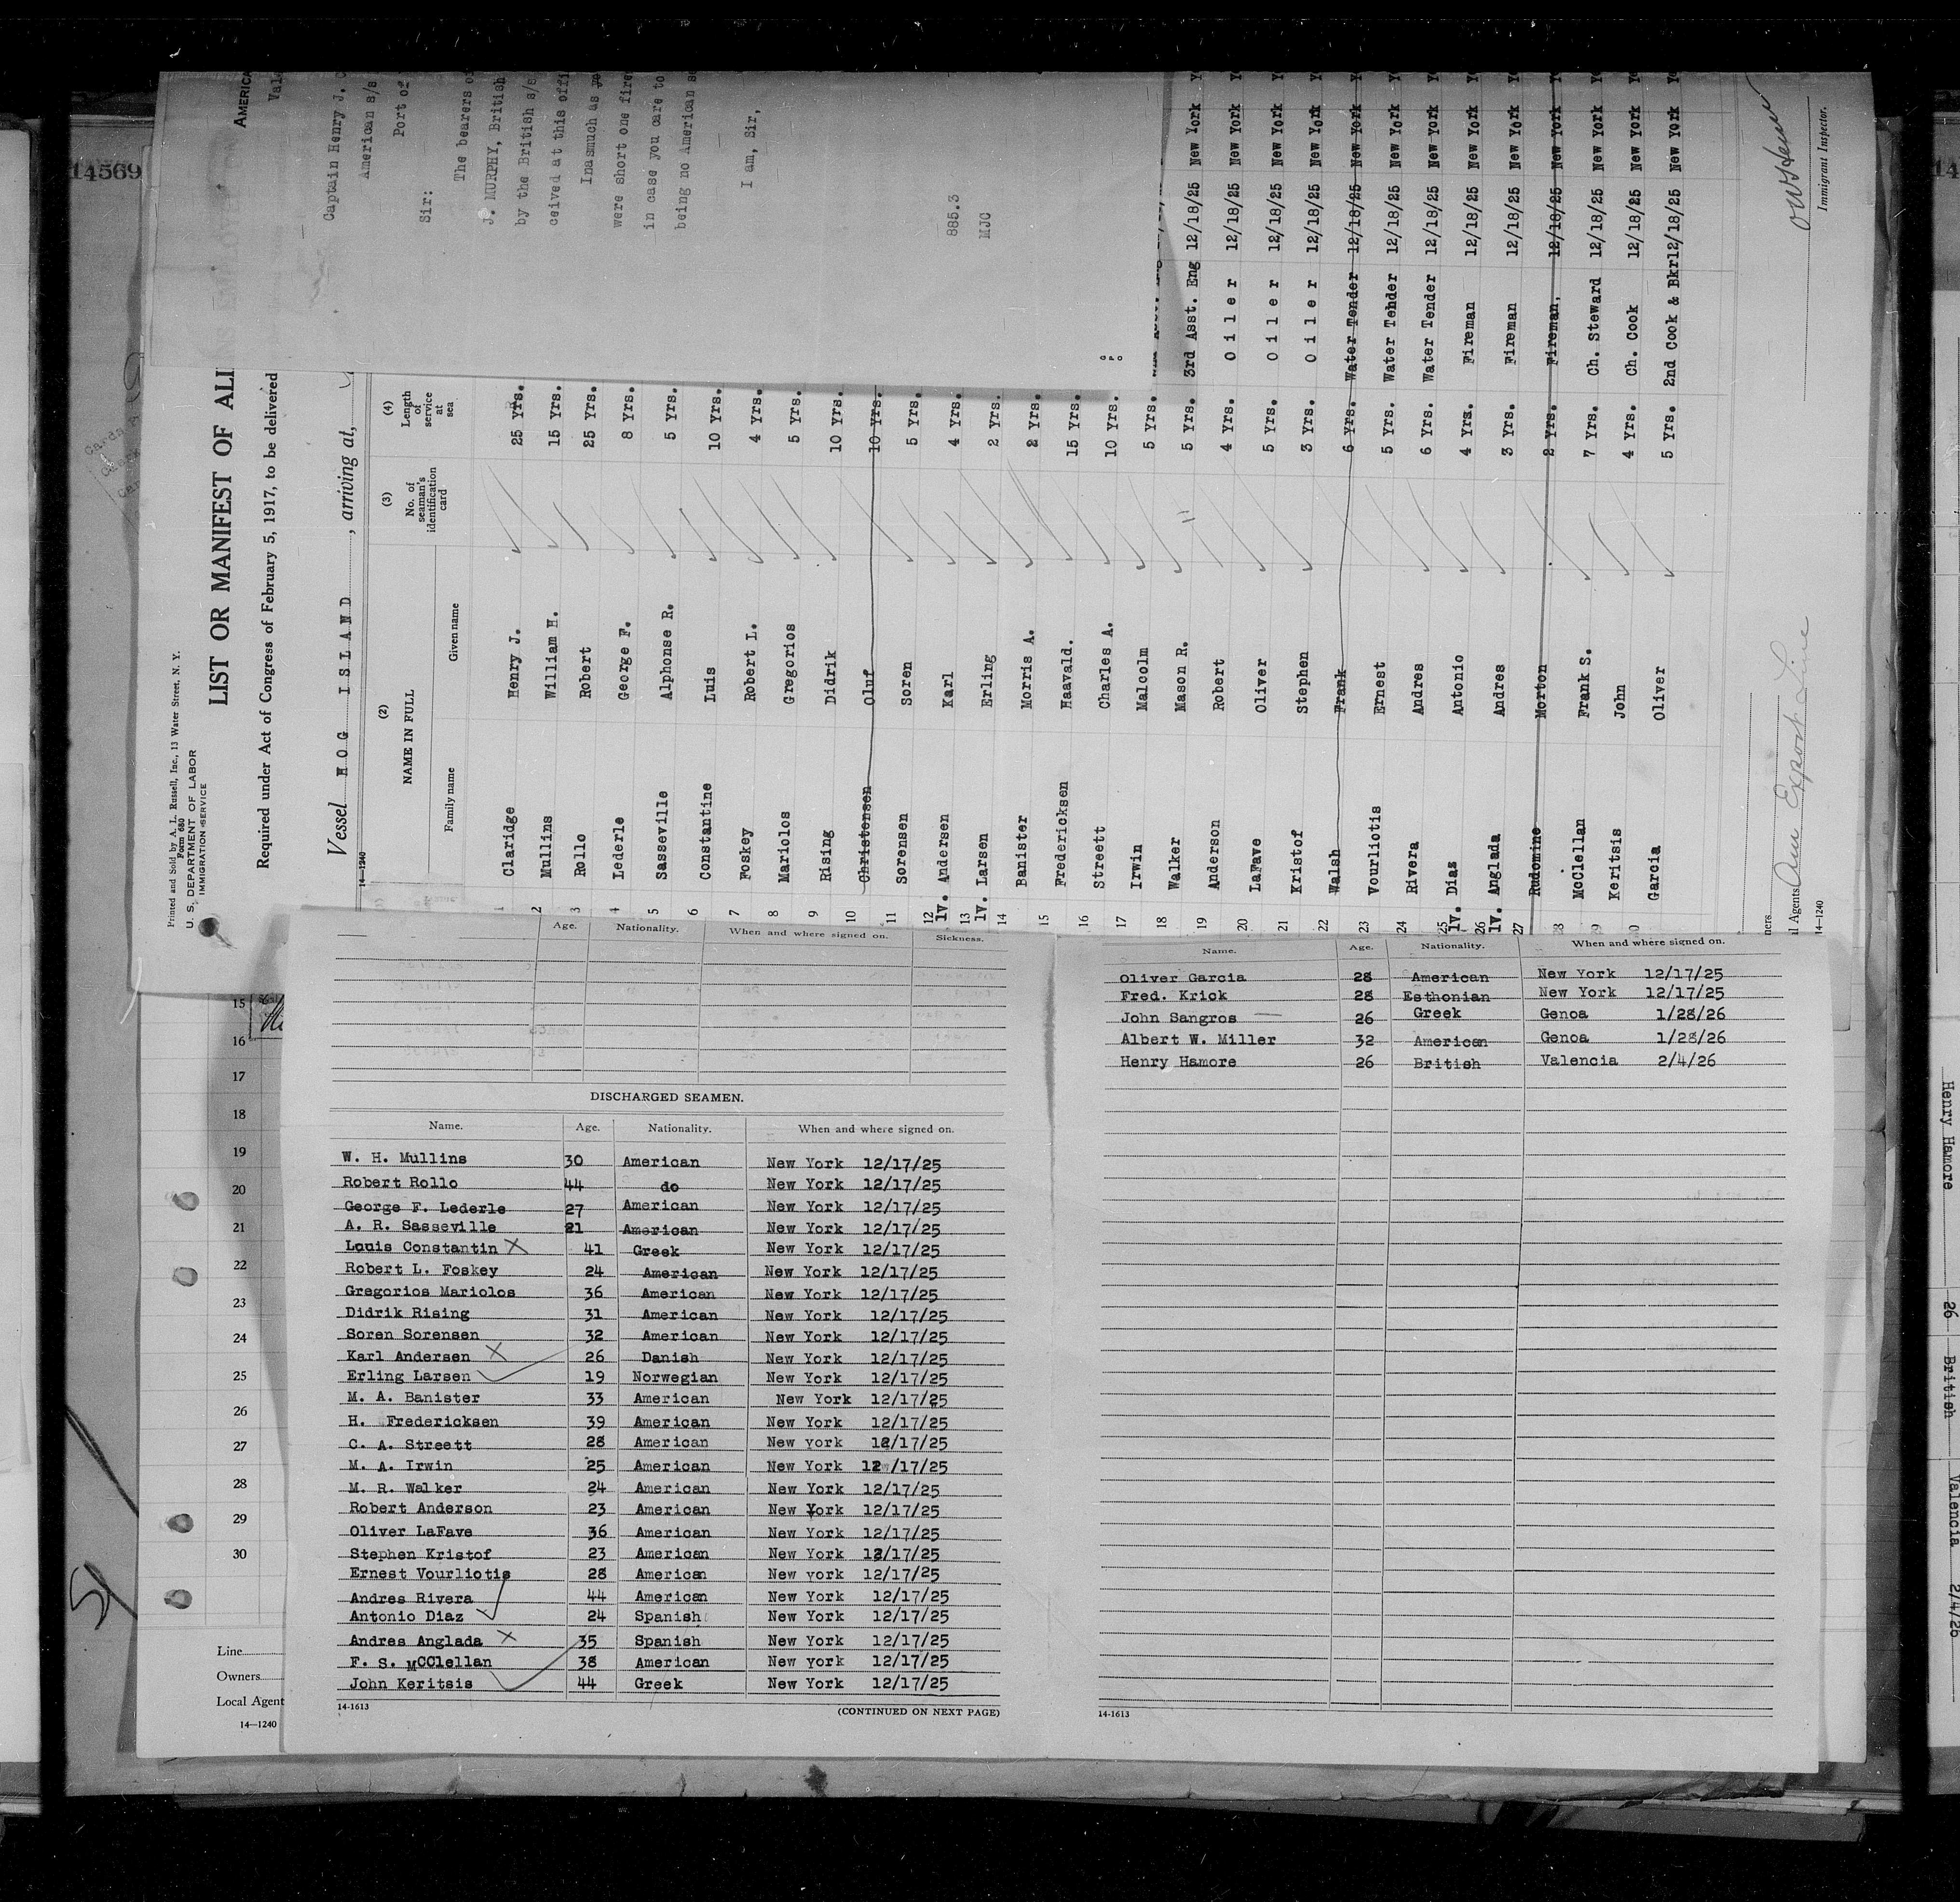 14569
AMERICA
Captain Henry J. C
American s/s
Port of
Sir:
The bearers of
J. MURPHY, British
by the British s/s
ceived at this offi
Inasmuch as yo
were short one fire
in case you care to
being no American se
I am, Sir,
885.3
MJC
Printed and Sold by A. L. Russell, Inc., 13 Water Street, N. Y.
Form 680
U. S. DEPARTMENT OF LABOR
IMMIGRATION SERVICE
LIST OR MANIFEST OF ALI
Required under Act of Congress of February 5, 1917, to be delivered
Vessel HOG ISLAND, arriving at,
14—1240
(2) (3) (4)
NAME IN FULL No. of seaman's identification card Length of service at sea
Family name Given name
1 Claridge Henry J. 25 yrs.
2 Mullins William H. 15 yrs.
3 Rollo Robert 25 Yrs.
4 Lederle George F. 8 yrs.
5 Sasseville Alphonse R. 5 yrs.
6 Constantine Luis 10 yrs.
7 Foskey Robert L. 4 yrs.
8 Mariolos Gregorios 5 yrs.
9 Rising Didrik 10 yrs.
10 Christensen Oluf 10 yrs.
11 Sorensen Soren 5 yrs.
12 lv. Andersen Karl 4 yrs.
13 lv. Larsen Erling 2 yrs.
14 Banister Morris A. 2 yrs.
15 Fredericksen Haavald. 15 yrs.
16 Streett Charles A. 10 yrs.
17 Irwin Malcolm 5 yrs.
18 Walker Mason R. 5 yrs. 3rd Asst. Eng 12/18/25 New York
19 Anderson Robert 4 yrs. Oiler 12/18/25 New York
20 LaFave Oliver 5 yrs. Oiler 12/18/25 New York
21 Kristof Stephen 3 yrs. Oiler 12/18/25 New York
22 Walsh Frank 6 yrs. Water Tender 12/18/25 New York
23 Vourliotis Ernest 5 yrs. Water Tender 12/18/25 New York
24 Rivera Andres 6 yrs. Water Tender 12/18/25 New York
25 lv. Dias Antonio 4 yrs. Fireman 12/18/25 New York
26 lv. Anglada Andres 3 yrs. Fireman 12/18/25 New York
27 Rudomine Morton 2 yrs. Fireman, 12/18/25 New York
28 McClellan Frank S. 7 yrs. Ch. Steward 12/18/25 New York
29 Keritsis John 4 yrs. Ch. Cook 12/18/25 New York
30 Garcia Oliver 5 yrs. 2nd Cook & Bkr 12/18/25 New York
Immigrant Inspector.
ners
l Agents Am Export Line
14—1240
Age. Nationality. When and where signed on. Sickness.
DISCHARGED SEAMEN.
Name. Age. Nationality. When and where signed on.
W. H. Mullins 30 American New York 12/17/25
Robert Rollo 44 do New York 12/17/25
George F. Lederle 27 American New York 12/17/25
A. R. Sasseville 21 American New York 12/17/25
Louis Constantin X 41 Greek New York 12/17/25
Robert L. Foskey 24 American New York 12/17/25
Gregorios Mariolos 36 American New York 12/17/25
Didrik Rising 31 American New York 12/17/25
Soren Sorensen 32 American New York 12/17/25
Karl Andersen X 26 Danish New York 12/17/25
Erling Larsen 19 Norwegian New York 12/17/25
M. A. Banister 33 American New York 12/17/25
H. Fredericksen 39 American New York 12/17/25
C. A. Streett 28 American New york 12/17/25
M. A. Irwin 25 American New York 12 /17/25
M. R. Walker 24 American New York 12/17/25
Robert Anderson 23 American New York 12/17/25
Oliver LaFave 36 American New York 12/17/25
Stephen Kristof 23 American New York 12/17/25
Ernest Vourliotis 28 American New york 12/17/25
Andres Rivera 44 American New York 12/17/25
Antonio Diaz 24 Spanish New York 12/17/25
Andres Anglada X 35 Spanish New York 12/17/25
F. S. McClellan 38 American New york 12/17/25
John Keritsis 44 Greek New York 12/17/25
14-1613
(CONTINUED ON NEXT PAGE)
Name. Age. Nationality. When and where signed on.
Oliver Garcia 28 American New York 12/17/25
Fred. Krick 28 Esthonian New York 12/17/25
John Sangros 26 Greek Genoa 1/28/26
Albert W. Miller 32 American Genoa 1/28/26
Henry Hamore 26 British Valencia 2/4/26
14-1613
15
16
17
18
19
20
21
22
23
24
25
26
27
28
29
30
Line
Owners
Local Agent
14—1240
Henry Hamore 26 British Valencia 2/4/26